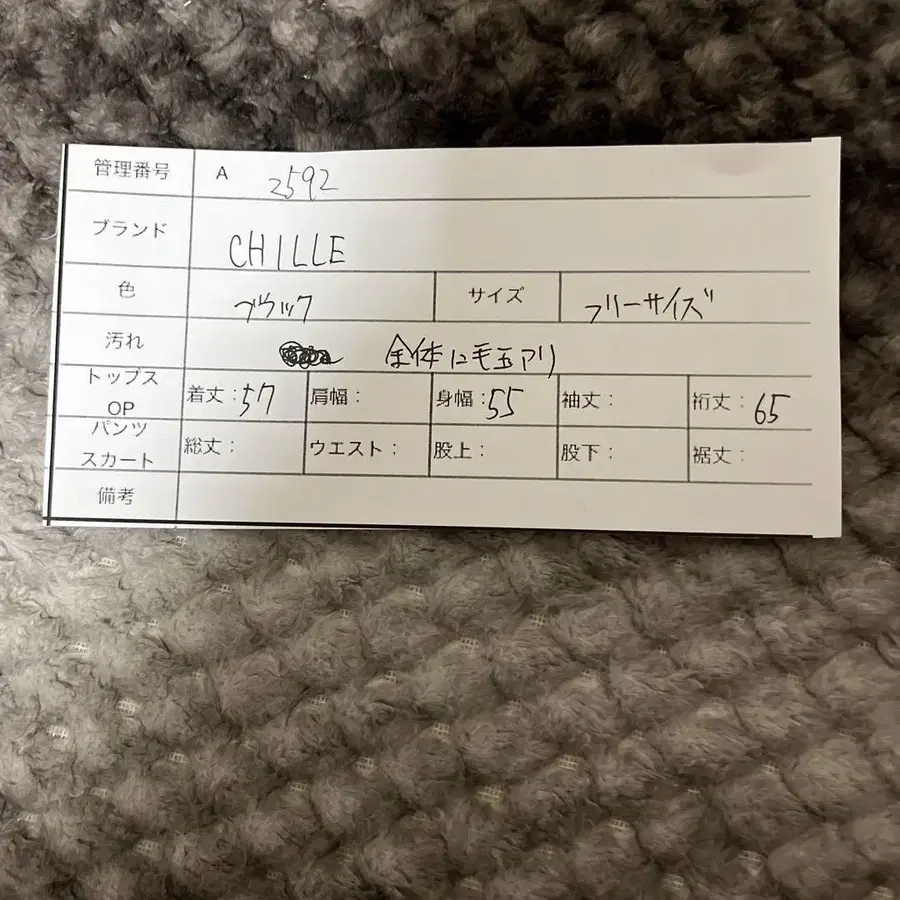 管理番号 A 2592
ブランド CHILLE
色 ブラック サイズ フリーサイズ
汚れ 全体に毛玉アリ
トップス OP 着丈:57 肩幅: 身幅:55 袖丈: 裄丈:65
パンツ スカート 総丈: ウエスト: 股上: 股下: 裾丈:
備考